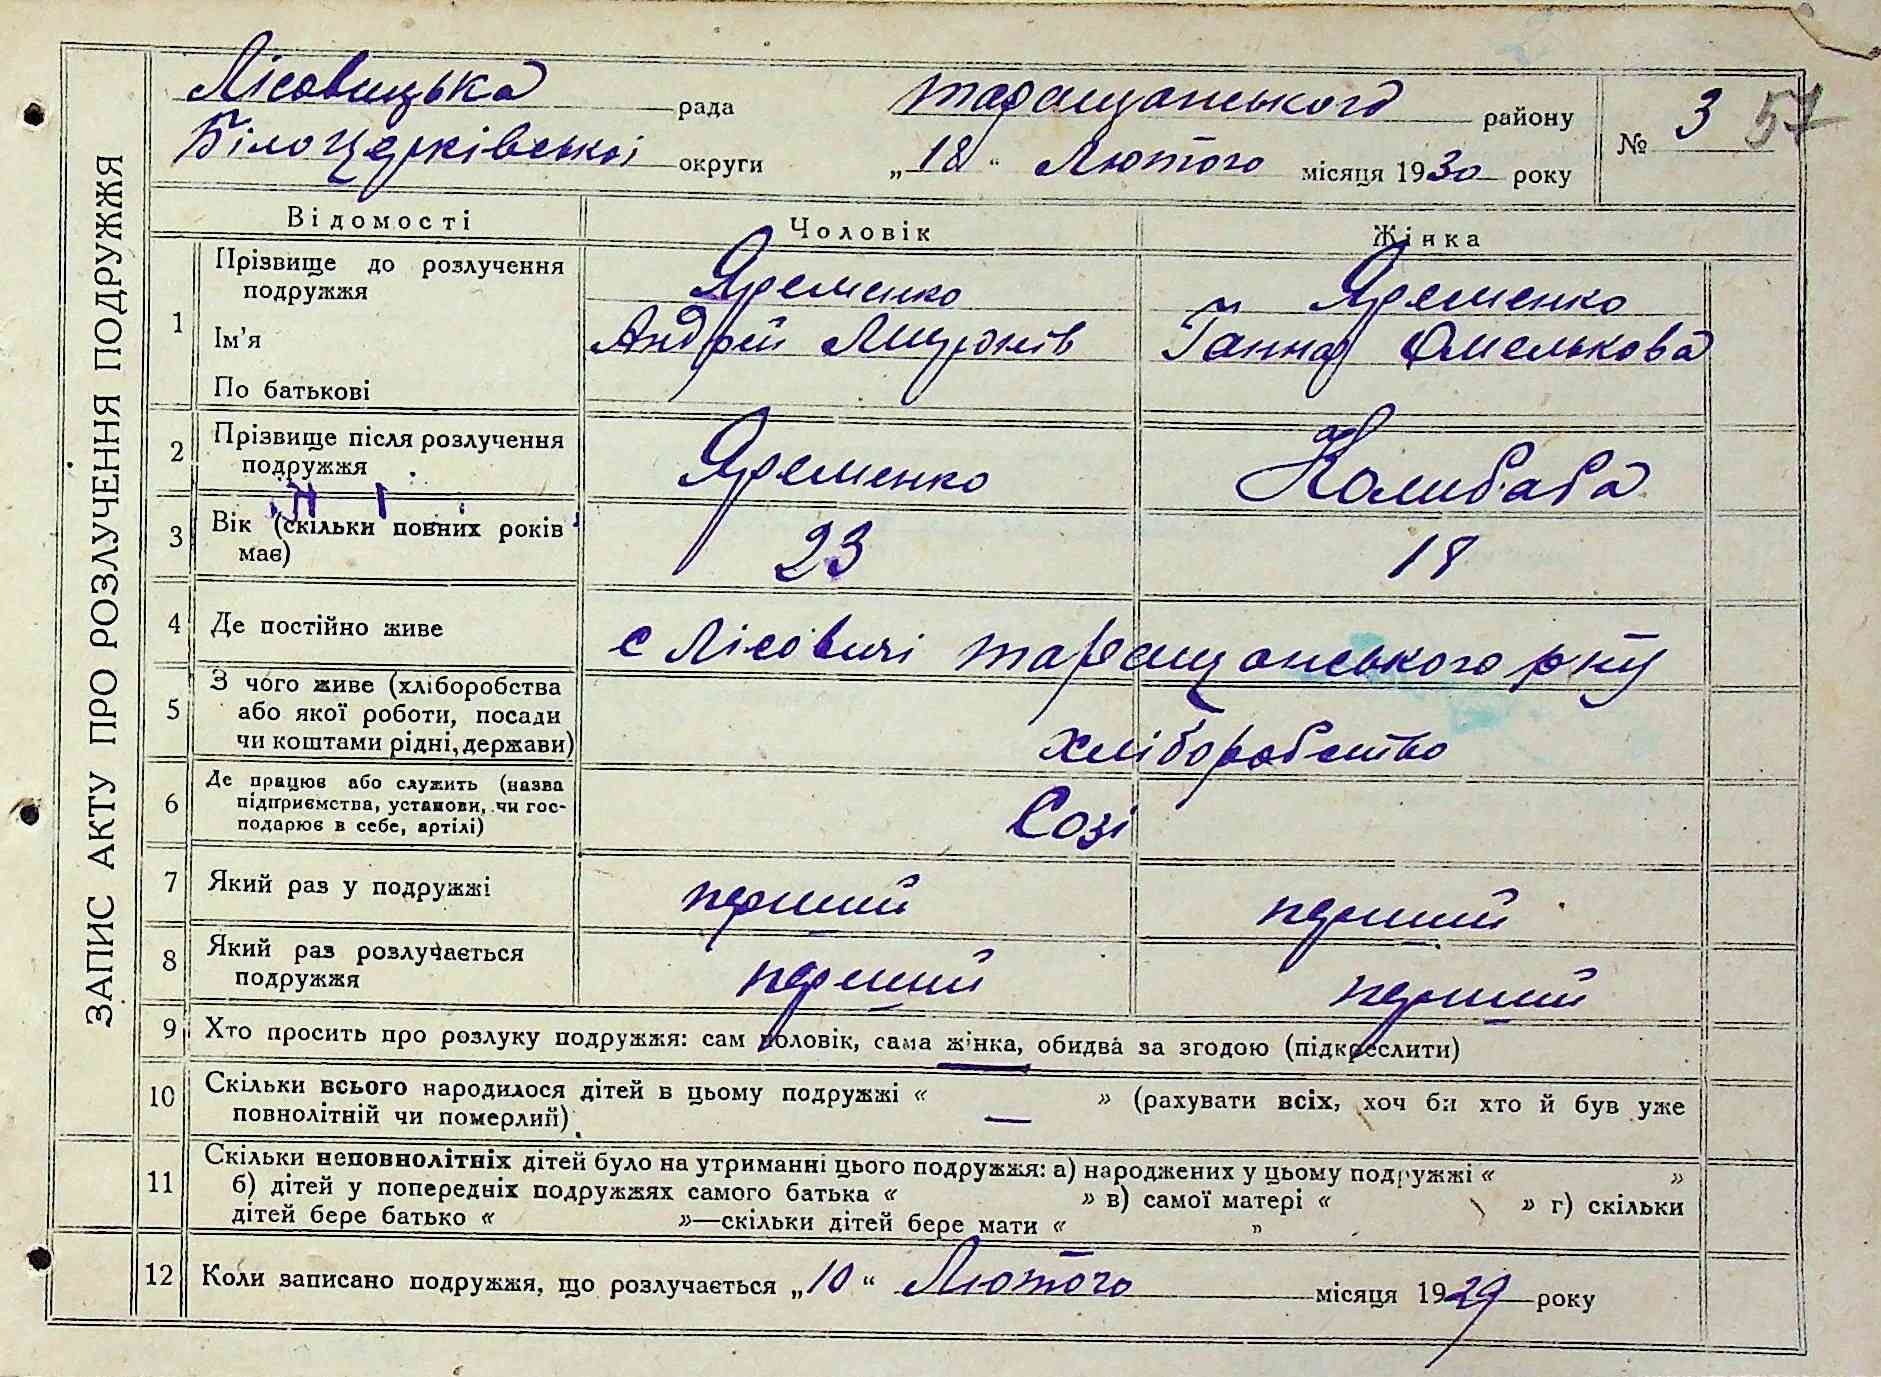 ЗАПИС АКТУ ПРО РОЗЛУЧЕННЯ ПОДРУЖЖЯ
Лісовицька рада Таращанського району
№ 3 57
Білоцерківської округи „18“ Лютого місяця 1930 року
Відомості Чоловік Жінка
1 Прізвище до розлучення подружжя Яременко Яременко
Ім'я Андрій Ганна Омелькова
По батькові
2 Прізвище після розлучення подружжя Яременко Колибаба
3 Вік (скільки повних років має) 23 18
4 Де постійно живе с Лісовичі Таращанського рну
5 З чого живе (хліборобства
або якої роботи, посади
чи коштами рідні, держави) хліборобство
6 Де працює або служить (назва
підприємства, установи, чи гос-
подарює в себе, артілі) Созі
7 Який раз у подружжі перший перший
8 Який раз розлучається
подружжя перший перший
9 Хто просить про розлуку подружжя: сам чоловік, сама жінка, обидва за згодою (підкреслити)
10 Скільки всього народилося дітей в цьому подружжі « — » (рахувати всіх, хоч би хто й був уже
повнолітній чи померлий)
11 Скільки неповнолітніх дітей було на утриманні цього подружжя: а) народжених у цьому подружжі « »
б) дітей у попередніх подружжях самого батька « » в) самої матері « » г) скільки
дітей бере батько « »—скільки дітей бере мати « »
12 Коли записано подружжя, що розлучається „10“ Лютого місяця 1929 року